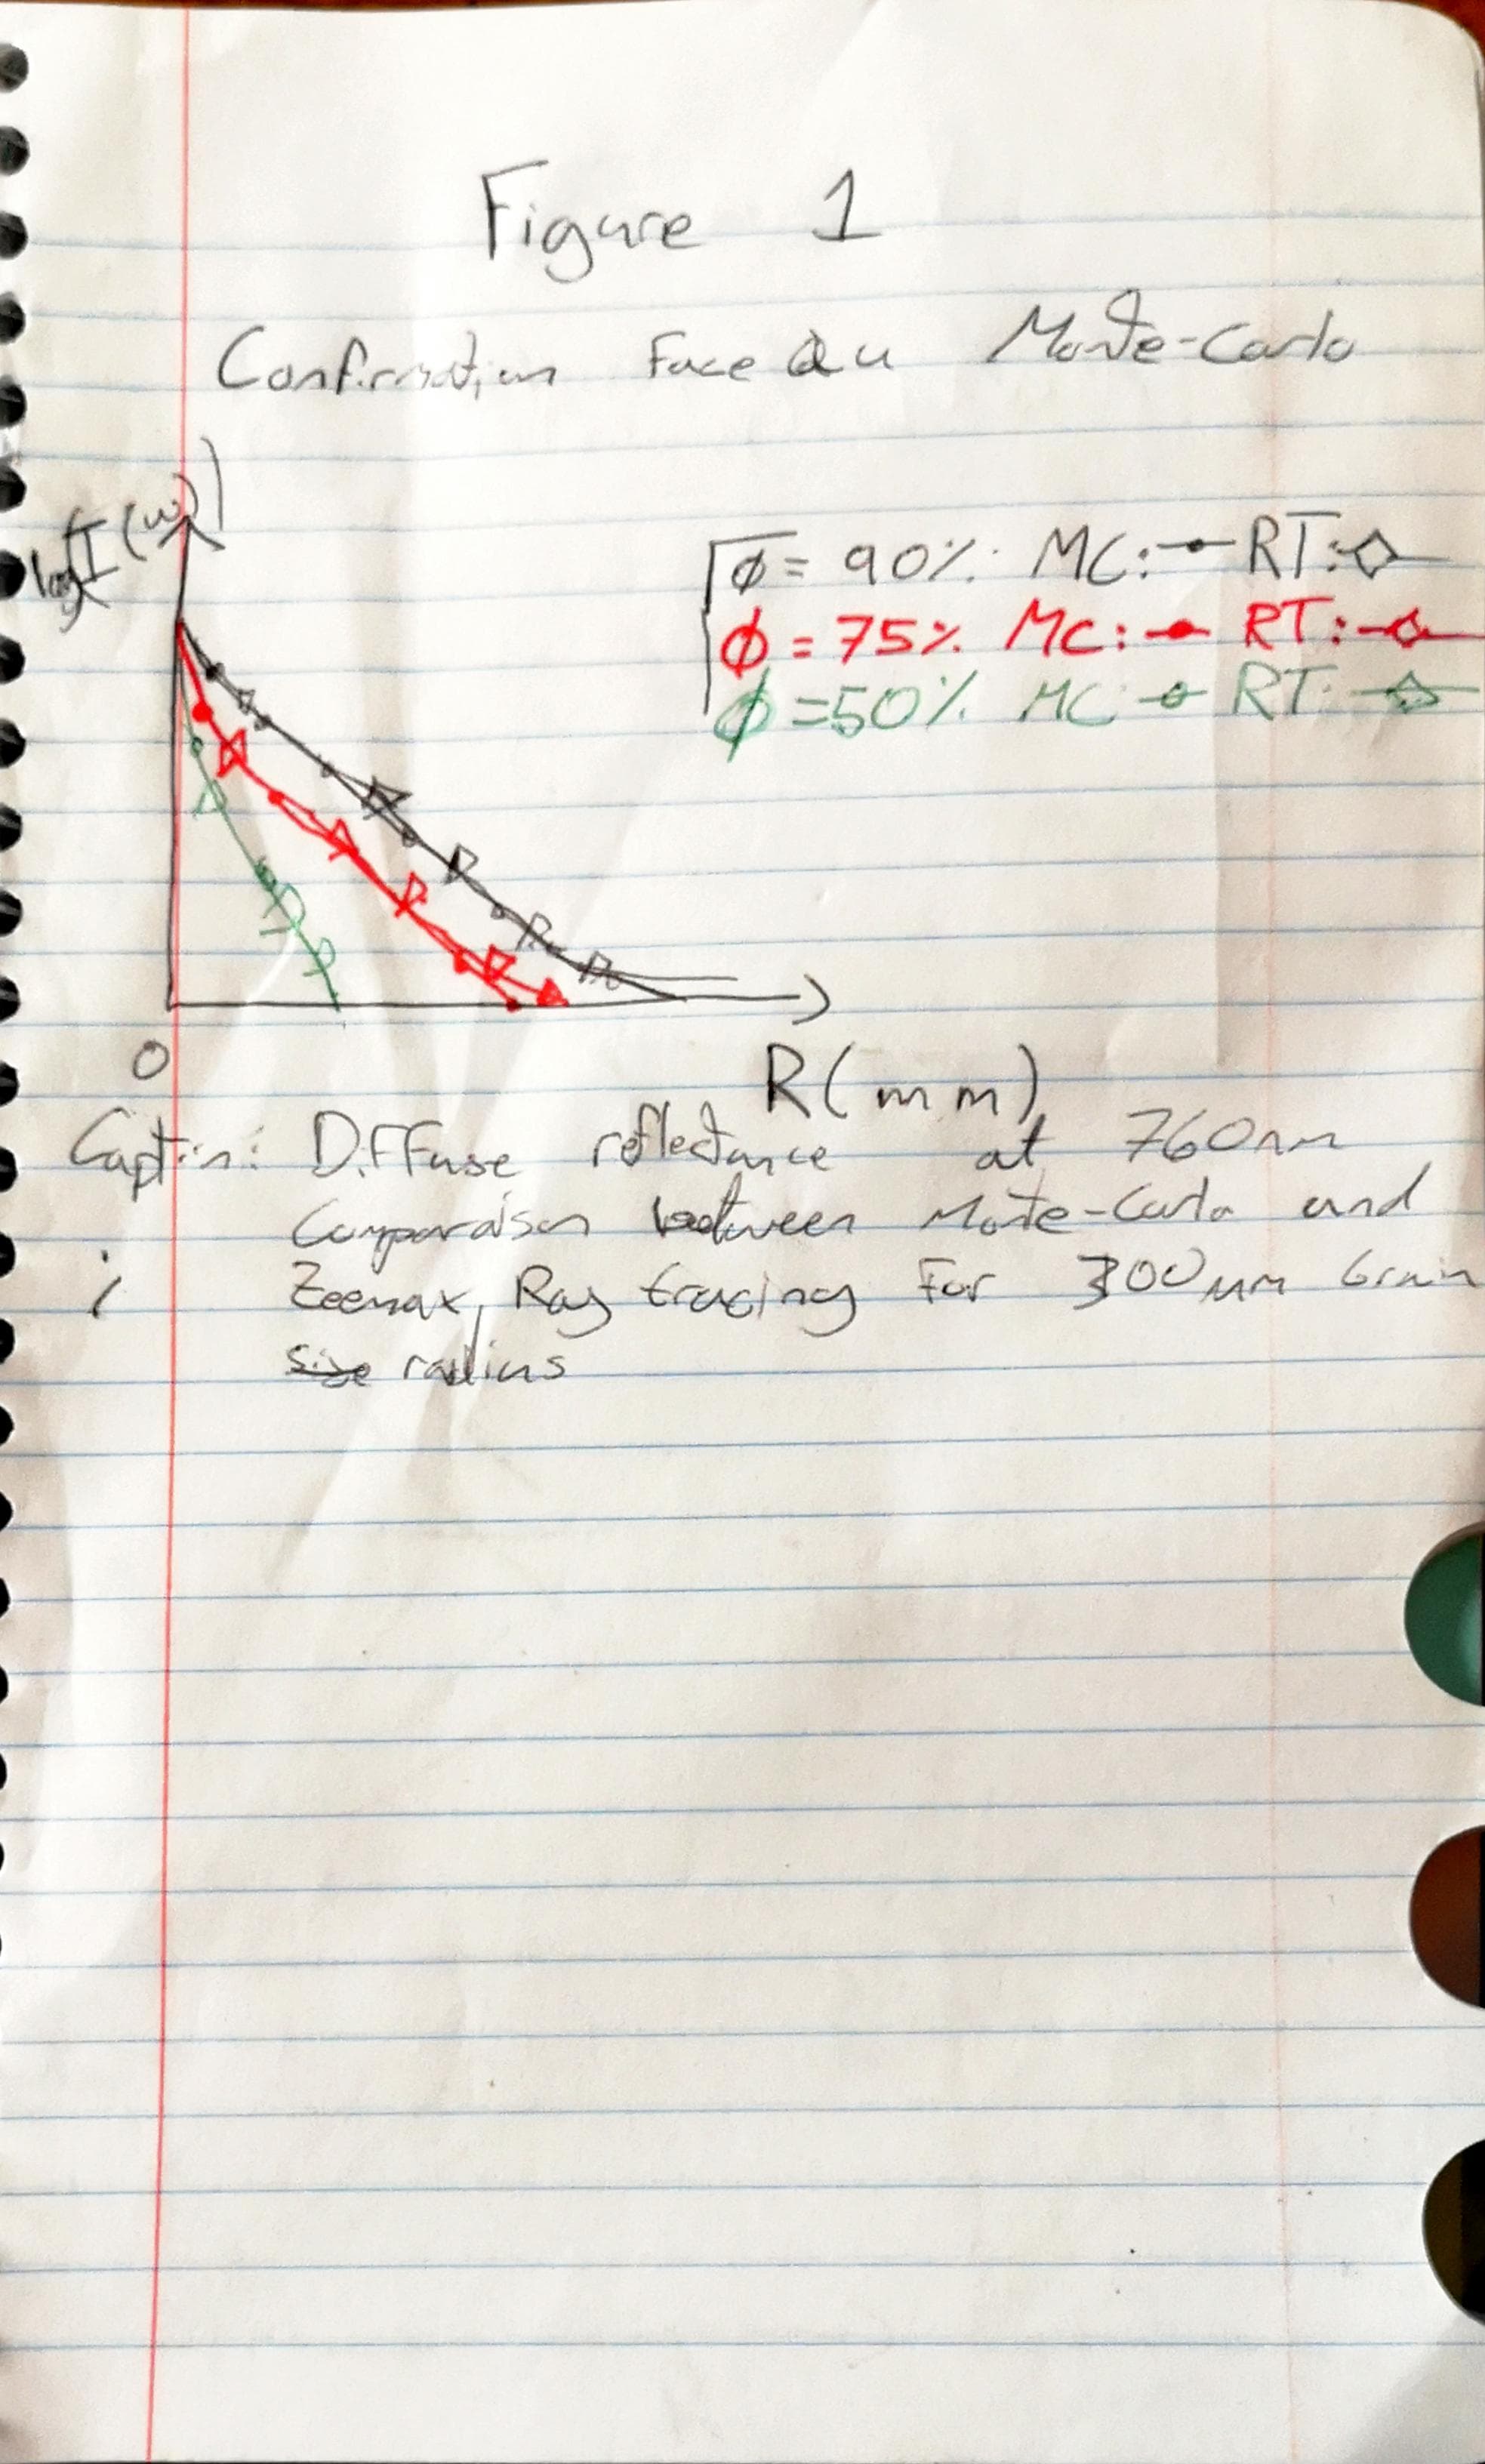 Figure 1
Confirmation Face au Monte-Carlo
log(I(w))
ϕ = 90% MC: RT:
ϕ = 75% MC: RT:
ϕ = 50% MC: RT:
0
R(mm)
Caption: Diffuse reflectance at 760nm
Comparaison between Monte-Carlo and
Zeemax, Ray tracing For 300um Grain
size radius